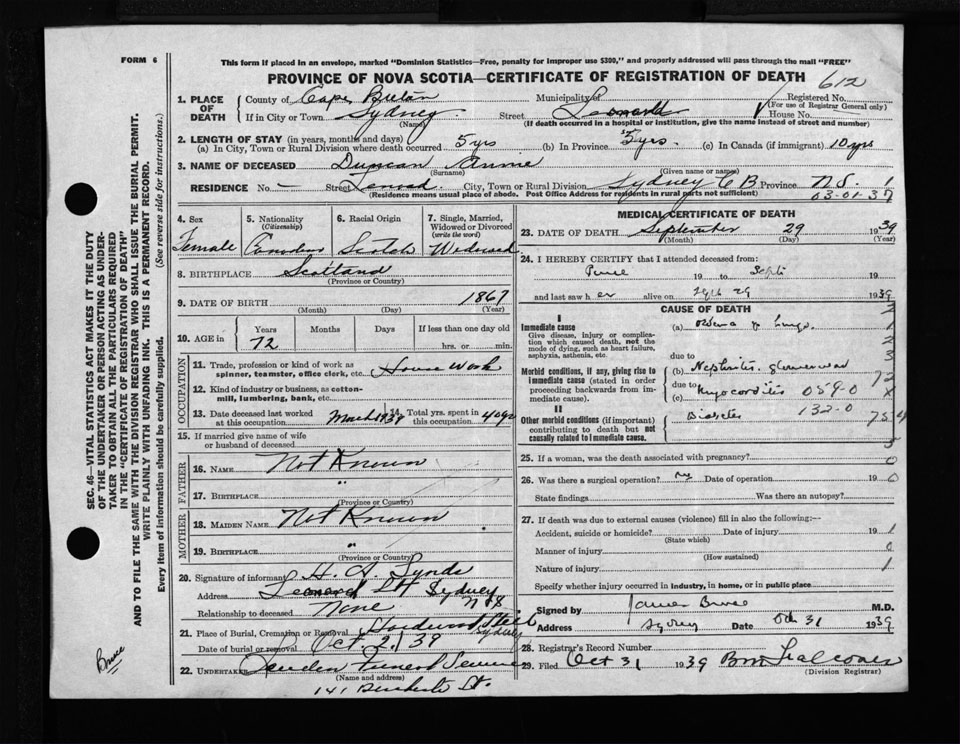 FORM 6
This form if placed in an envelope, marked "Dominion Statistics—Free, penalty for improper use $300," and properly addressed will pass through the mail "FREE"
PROVINCE OF NOVA SCOTIA—CERTIFICATE OF REGISTRATION OF DEATH
612
1. PLACE OF DEATH
County of Cape Breton Municipality of Registered No.
(For use of Registrar General only)
If in City or Town Sydney Street Leonard House No.
(Name) (If death occurred in a hospital or institution, give the name instead of street and number)
2. LENGTH OF STAY (in years, months and days)
(a) In City, Town or Rural Division where death occurred 5 yrs (b) In Province 5 yrs. (c) In Canada (if immigrant) 10 yrs
3. NAME OF DECEASED Duncan Annie
(Surname) (Given name or names)
RESIDENCE No. — Street City, Town or Rural Division Sydney C B Province N.S. 1
(Residence means usual place of abode. Post Office Address for residents in rural parts not sufficient) 03-01-37
4. Sex Female
5. Nationality (Citizenship) Canadian
6. Racial Origin Scotch
7. Single, Married, Widowed or Divorced (write the word) Widowed
8. BIRTHPLACE Scotland
(Province or Country)
9. DATE OF BIRTH 1867
(Month) (Day) (Year)
10. AGE IN Years 72 Months Days If less than one day old hrs. or min.
OCCUPATION
11. Trade, profession or kind of work as spinner, teamster, office clerk, etc. House Work
12. Kind of industry or business, as cotton-mill, lumbering, bank, etc.
13. Date deceased last worked at this occupation March 1939 14. Total yrs. spent in this occupation 40 yrs
15. If married give name of wife or husband of deceased
FATHER
16. NAME Not Known
17. BIRTHPLACE "
(Province or Country)
MOTHER
18. MAIDEN NAME Not Known
19. BIRTHPLACE "
(Province or Country)
20. Signature of informant H. A. Lynds
Address Leonard St Sydney N S
Relationship to deceased None
21. Place of Burial, Cremation or Removal Hardwood Hill Sydney
Date of burial or removal Oct 2/39
22. UNDERTAKER Funeral Service
(Name and address)
141 St.
MEDICAL CERTIFICATE OF DEATH
23. DATE OF DEATH September 29 1939
(Month) (Day) (Year)
24. I HEREBY CERTIFY that I attended deceased from:
June 19 to Sept 19
and last saw h er alive on Sept 29 1939
CAUSE OF DEATH
I
Immediate cause
Give disease, injury or complication which caused death, not the mode of dying, such as heart failure, asphyxia, asthenia, etc.
(a) Oedema of lungs.
due to
Morbid conditions, if any, giving rise to immediate cause (stated in order proceeding backwards from immediate cause).
(b) Nephritis,
due to
(c) Myocarditis 059-0
II
Other morbid conditions (if important) contributing to death but not causally related to immediate cause.
Diabetes 132-0
25. If a woman, was the death associated with pregnancy?
26. Was there a surgical operation? no Date of operation 19
State findings Was there an autopsy?
27. If death was due to external causes (violence) fill in also the following:—
Accident, suicide or homicide? Date of injury 19
(State which)
Manner of injury
(How sustained)
Nature of injury
Specify whether injury occurred in industry, in home, or in public place
Signed by James Bruce M.D.
Address Sydney Date Oct 31 1939
28. Registrar's Record Number
29. Filed Oct 31 1939 Falconer
(Division Registrar)
SEC. 46—VITAL STATISTICS ACT MAKES IT THE DUTY OF THE UNDERTAKER OR PERSON ACTING AS UNDERTAKER TO OBTAIN ALL THE PARTICULARS REQUIRED IN THE "CERTIFICATE OF REGISTRATION OF DEATH" AND TO FILE THE SAME WITH THE DIVISION REGISTRAR WHO SHALL ISSUE THE BURIAL PERMIT.
WRITE PLAINLY WITH UNFADING INK. THIS IS A PERMANENT RECORD.
Every item of information should be carefully supplied. (See reverse side for instructions.)
Bruce